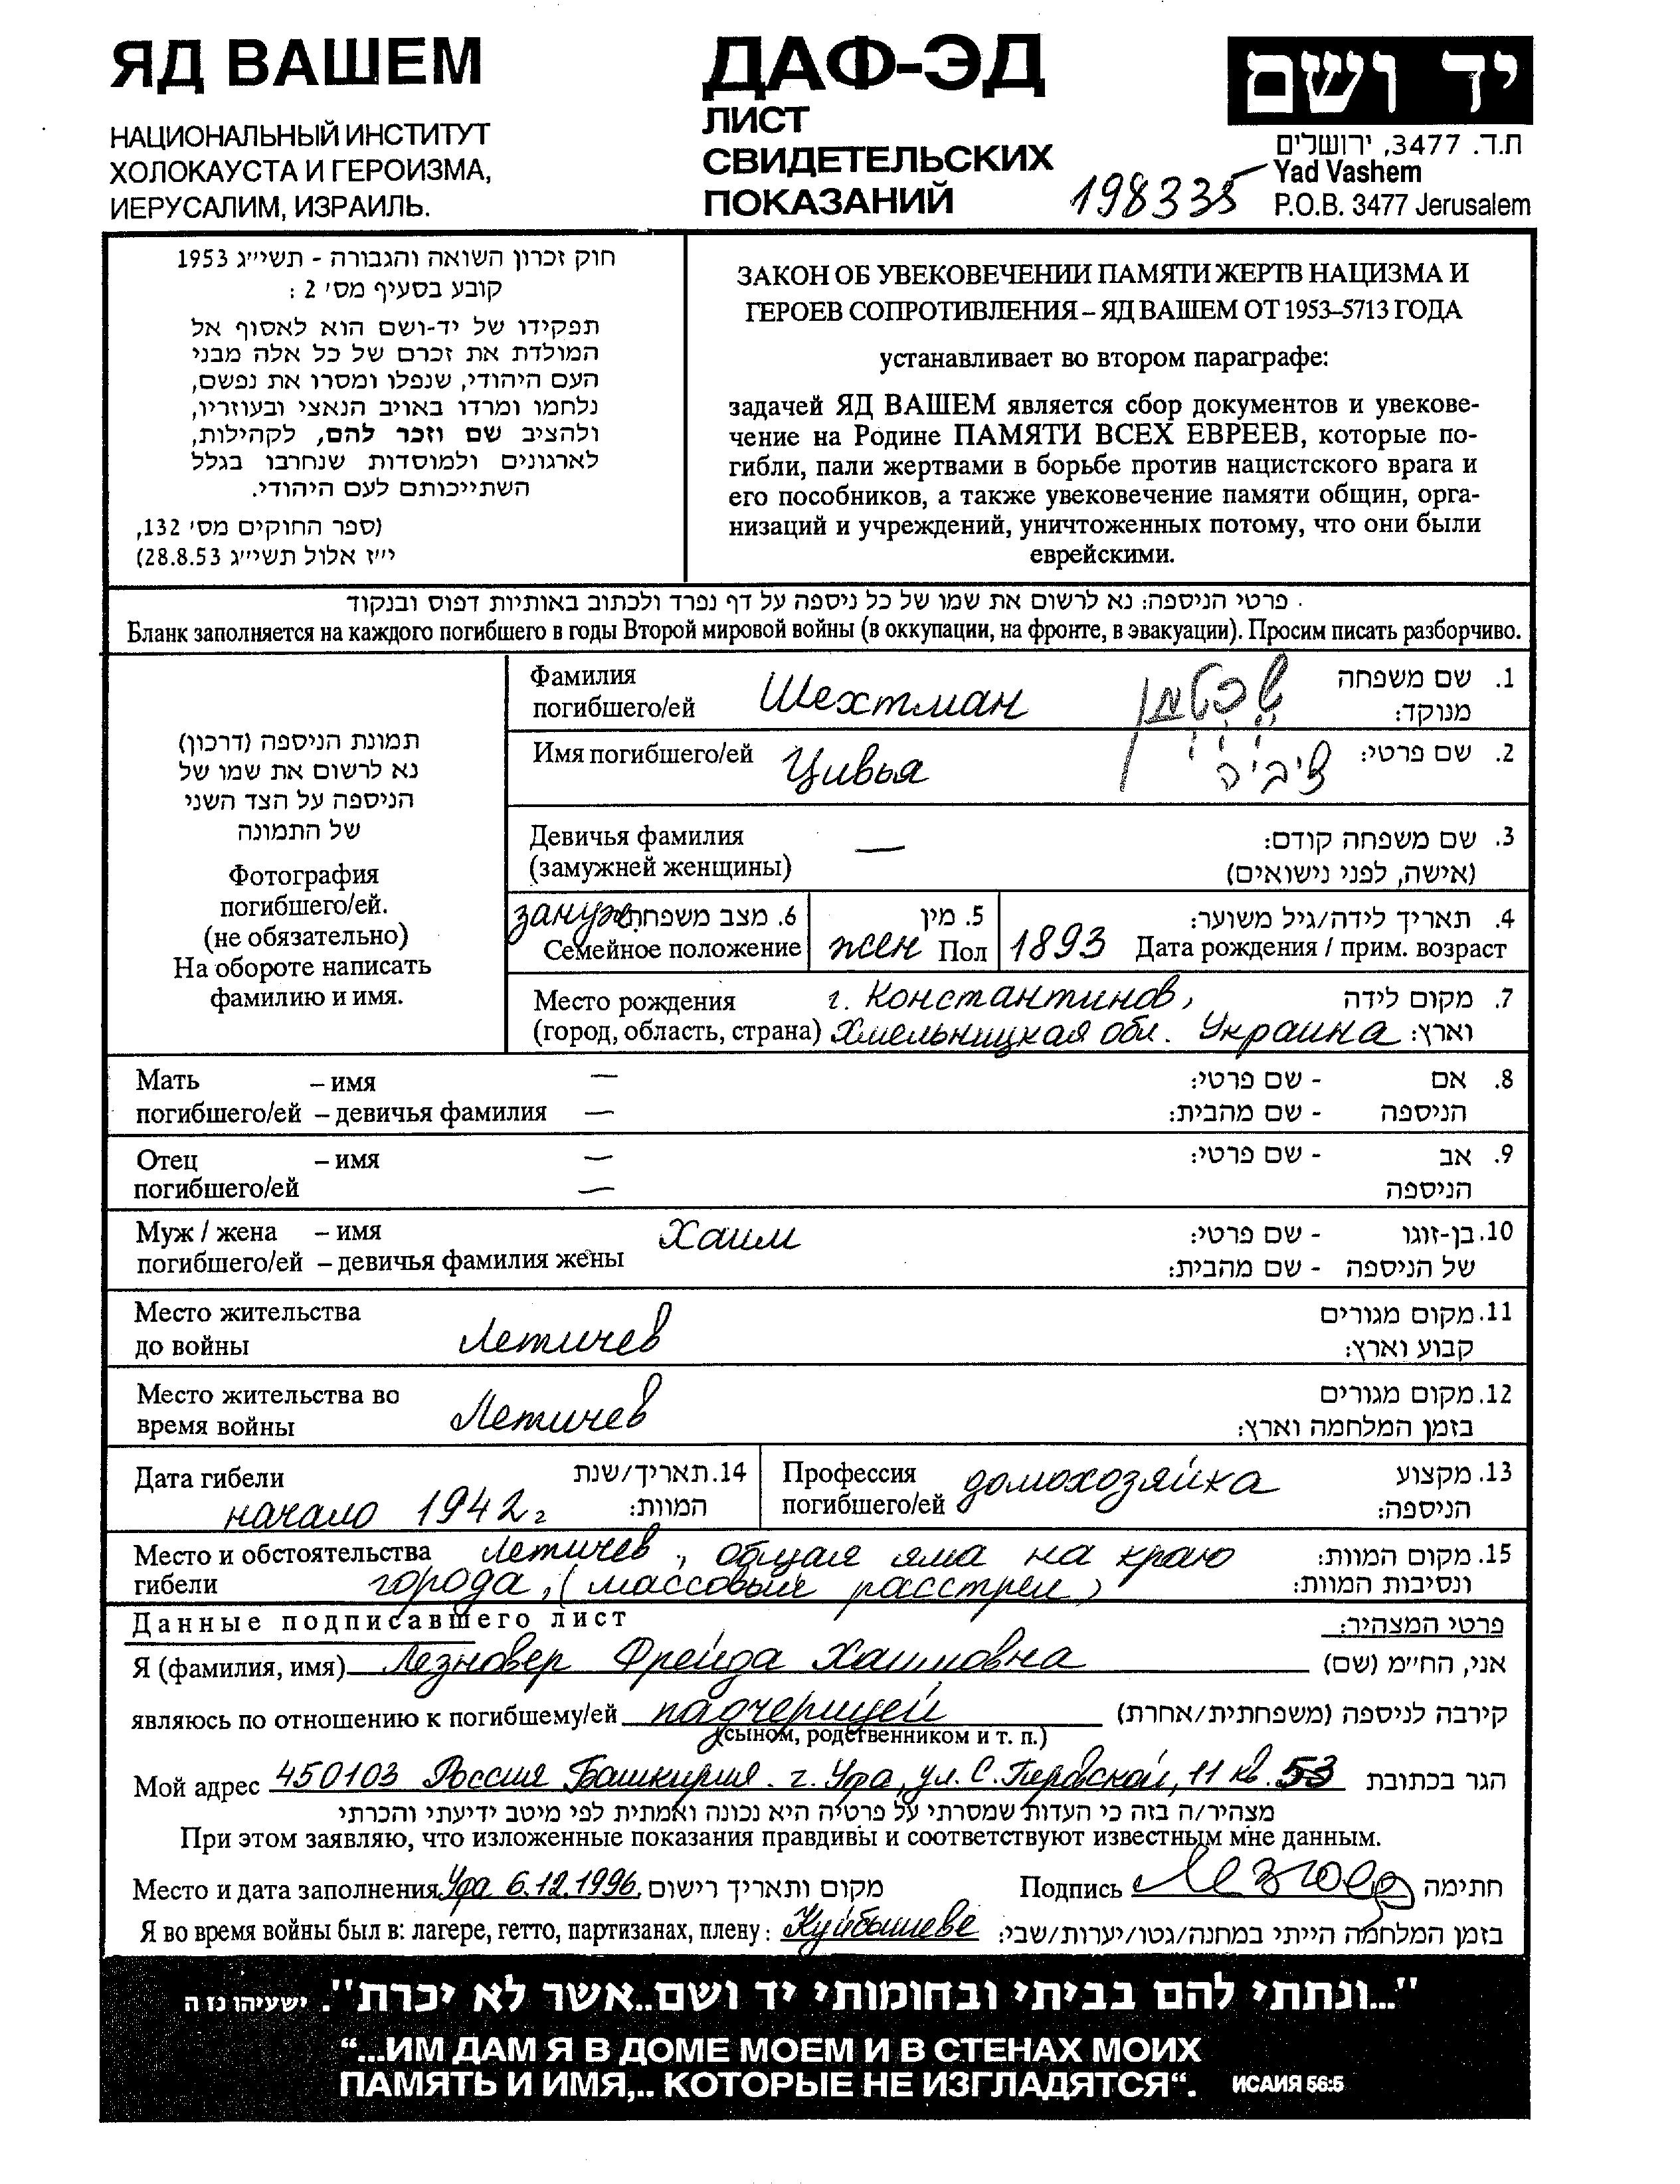 ЯД ВАШЕМ
НАЦИОНАЛЬНЫЙ ИНСТИТУТ
ХОЛОКАУСТА И ГЕРОИЗМА,
ИЕРУСАЛИМ, ИЗРАИЛЬ.
ДАФ-ЭД
ЛИСТ
СВИДЕТЕЛЬСКИХ
ПОКАЗАНИЙ
198335
יד ושם
ת.ד. 3477, ירושלים
Yad Vashem
P.O.B. 3477 Jerusalem
חוק זכרון השואה והגבורה - תשי״ג 1953
קובע בסעיף מס׳ 2 :
תפקידו של יד-ושם הוא לאסוף אל
המולדת את זכרם של כל אלה מבני
העם היהודי, שנפלו ומסרו את נפשם,
נלחמו ומרדו באויב הנאצי ובעוזריו,
ולהציב שם וזכר להם, לקהילות,
לארגונים ולמוסדות שנחרבו בגלל
השתייכותם לעם היהודי.
(ספר החוקים מס׳ 132,
י״ז אלול תשי״ג 28.8.53)
ЗАКОН ОБ УВЕКОВЕЧЕНИИ ПАМЯТИ ЖЕРТВ НАЦИЗМА И
ГЕРОЕВ СОПРОТИВЛЕНИЯ – ЯД ВАШЕМ ОТ 1953–5713 ГОДА
устанавливает во втором параграфе:
задачей ЯД ВАШЕМ является сбор документов и увекове-
чение на Родине ПАМЯТИ ВСЕХ ЕВРЕЕВ, которые по-
гибли, пали жертвами в борьбе против нацистского врага и
его пособников, а также увековечение памяти общин, орга-
низаций и учреждений, уничтоженных потому, что они были
еврейскими.
פרטי הניספה: נא לרשום את שמו של כל ניספה על דף נפרד ולכתוב באותיות דפוס ובנקוד .
Бланк заполняется на каждого погибшего в годы Второй мировой войны (в оккупации, на фронте, в эвакуации). Просим писать разборчиво.
תמונת הניספה (דרכון)
נא לרשום את שמו של
הניספה על הצד השני
של התמונה
Фотография
погибшего/ей.
(не обязательно)
На обороте написать
фамилию и имя.
Фамилия
погибшего/ей Шехтман שכטמן
1. שם משפחה
מנוקד:
Имя погибшего/ей Цивья ציביה 2. שם פרטי:
Девичья фамилия — 3. שם משפחה קודם:
(замужней женщины) (אישה, לפני נישואים)
замуж 6. מצב משפחתי 5. מין 4. תאריך לידה/גיל משוער:
Семейное положение жен Пол 1893 Дата рождения / прим. возраст
Место рождения г. Константинов, 7. מקום לידה
(город, область, страна) Хмельницкая обл. Украина וארץ:
Мать – имя — 8. אם - שם פרטי:
погибшего/ей – девичья фамилия — הניספה - שם מהבית:
Отец – имя — 9. אב - שם פרטי:
погибшего/ей — הניספה
Муж / жена – имя Хаим 10. בן-זוגו - שם פרטי:
погибшего/ей – девичья фамилия жены של הניספה - שם מהבית:
Место жительства 11. מקום מגורים
до войны Летичев קבוע וארץ:
Место жительства во 12. מקום מגורים
время войны Летичев בזמן המלחמה וארץ:
Дата гибели 14. תאריך/שנת
начало 1942 г המוות:
Профессия домохозяйка 13. מקצוע
погибшего/ей הניספה:
Место и обстоятельства Летичев, общая яма на краю 15. מקום המוות:
гибели города, (массовый расстрел) ונסיבות המוות:
Данные подписавшего лист פרטי המצהיר:
Я (фамилия, имя) Лезновер Фрейда Хаимовна אני, הח״מ (שם)
являюсь по отношению к погибшему/ей падчерицей קירבה לניספה (משפחתית/אחרת)
(сыном, родственником и т. п.)
Мой адрес 450103 Россия Башкирия. г. Уфа, ул. С. Перовской, 11 кв. 53 הגר בכתובת
מצהיר/ה בזה כי העדות שמסרתי על פרטיה היא נכונה ואמתית לפי מיטב ידיעתי והכרתי
При этом заявляю, что изложенные показания правдивы и соответствуют известным мне данным.
Место и дата заполнения Уфа 6.12.1996 מקום ותאריך רישום Подпись Лезновер חתימה
Я во время войны был в: лагере, гетто, партизанах, плену: Куйбышеве בזמן המלחמה הייתי במחנה/גטו/יערות/שבי:
"...ונתתי להם בביתי ובחומותי יד ושם..אשר לא יכרת". ישעיהו נו ה
“...ИМ ДАМ Я В ДОМЕ МОЕМ И В СТЕНАХ МОИХ
ПАМЯТЬ И ИМЯ,.. КОТОРЫЕ НЕ ИЗГЛАДЯТСЯ“. ИСАИЯ 56:5